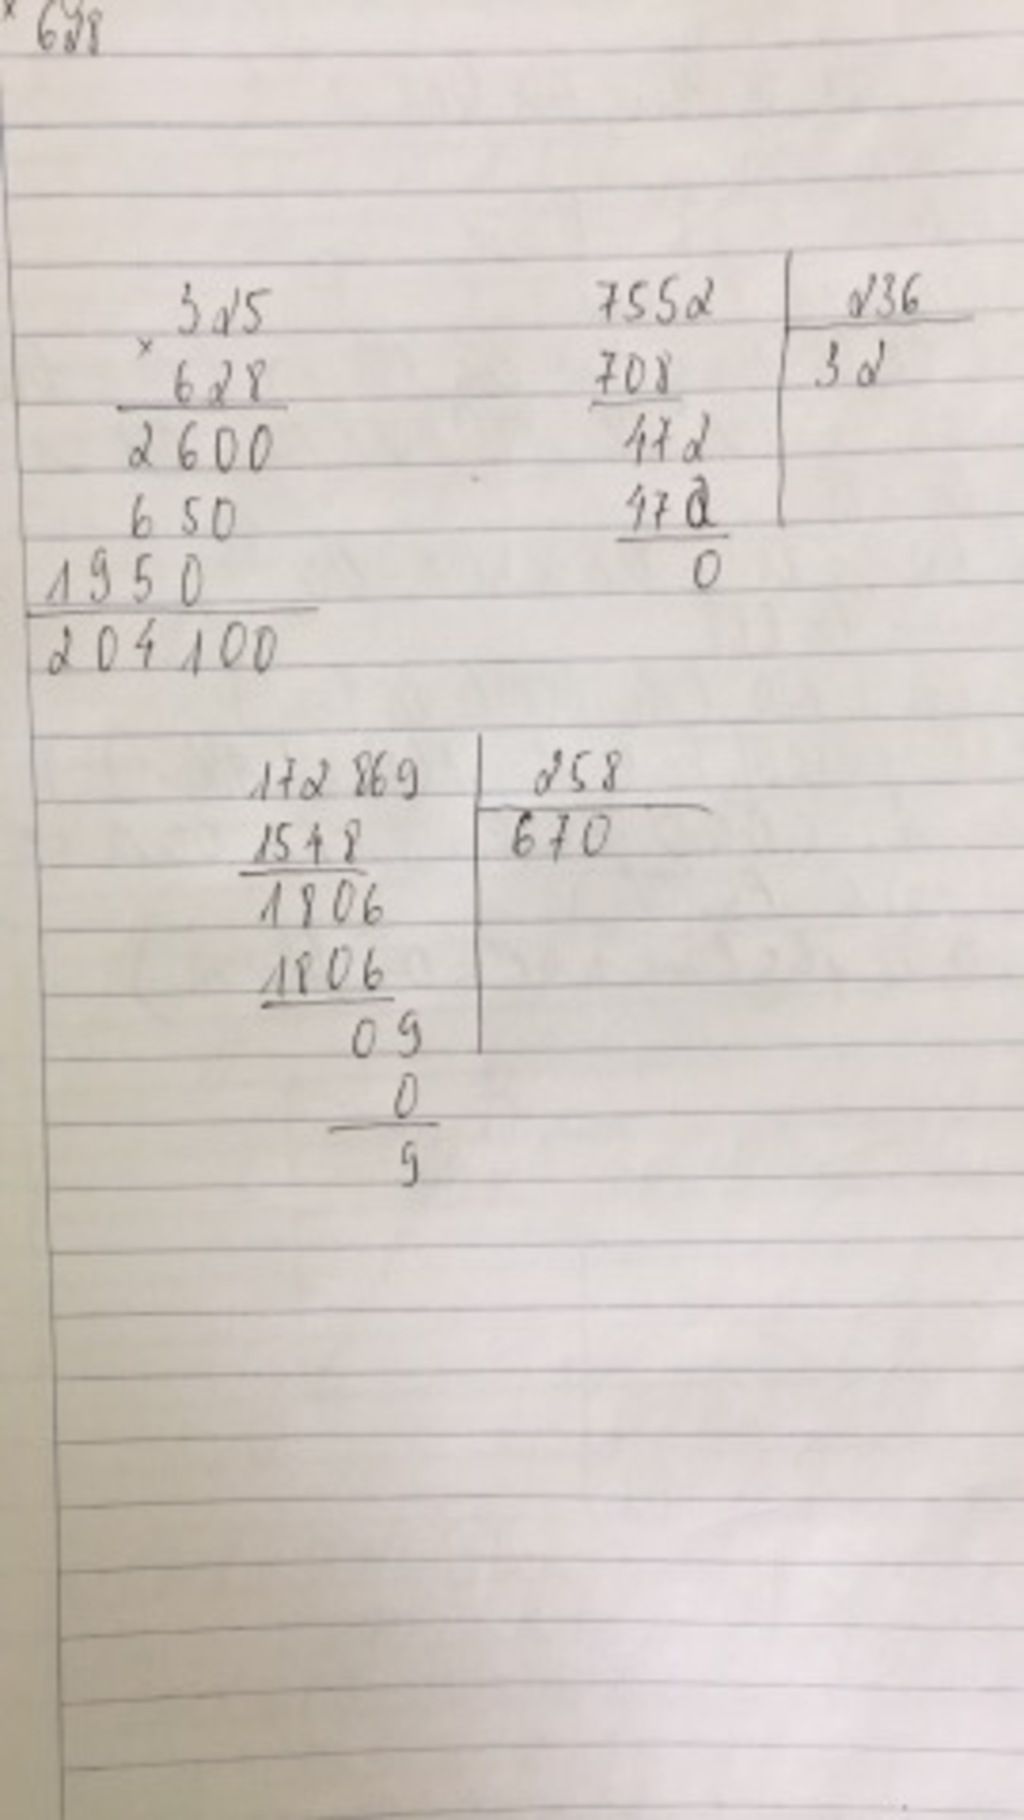 × 628
325
×
628
2600
650
1950
204100
7552 236
708 32
472
472
0
172869 258
1548 670
1806
1806
09
0
9